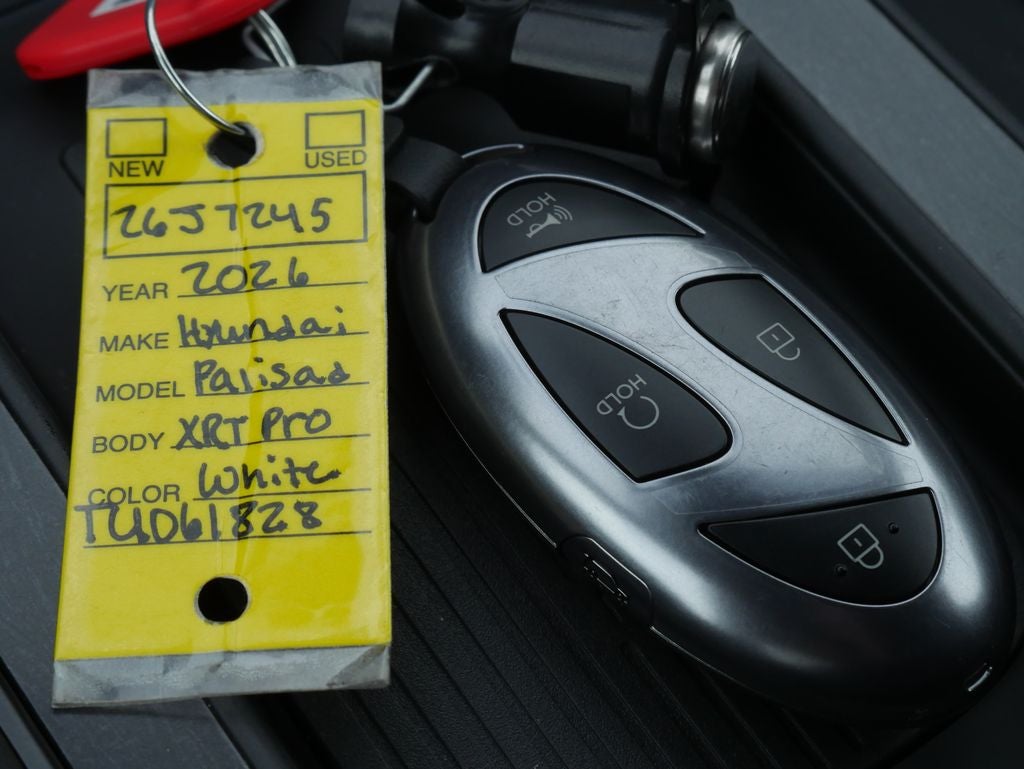 NEW USED
26J7245
YEAR 2026
MAKE Hyundai
MODEL Palisad
BODY XRT Pro
COLOR White
TU061828
HOLD
HOLD